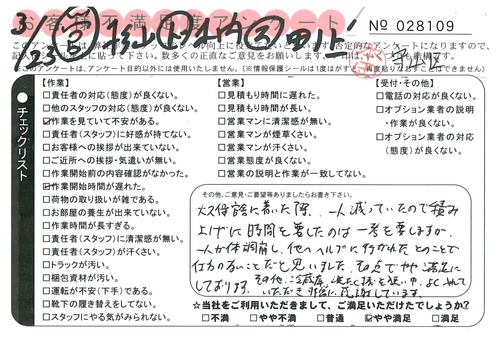 お客様不満足度アンケート
3/23
No 028109
守山区
チェックリスト
【作業】
□責任者の対応(態度)が良くない。
□他のスタッフの対応(態度)が良くない。
☑作業を見ていて不安がある。
□責任者(スタッフ)に好感が持てない。
□お客様への挨拶が出来ていない。
□ご近所への挨拶・気遣いが無い。
□作業開始前の内容確認がなかった。
☑作業開始時間が遅れた。
□荷物の取り扱いが雑である。
□お部屋の養生が出来ていない。
□作業時間が長すぎる。
□責任者(スタッフ)に清潔感が無い。
□責任者(スタッフ)が汗くさい。
□トラックが汚い。
□梱包資材が汚い。
□運転が不安(下手)である。
□靴下の履き替えをしてない。
□スタッフにやる気がみられない。
【営業】
□見積もり時間に遅れた。
□見積もり時間が長い。
□営業マンに清潔感が無い。
□営業マンが煙草くさい。
□営業マンが汗くさい。
□営業態度が良くない。
□営業の説明と作業が一致してない。
【受付・その他】
□電話の対応が良くない。
□オプション業者の説明・作業が良くない。
□オプション業者の対応(態度)が良くない。
その他、ご意見・ご要望等ありましたらお書き下さい。
着いた際、一人減っていたので積み
上げに時間を要したのは一考を要しますが、
一人が体調崩し、他へヘルプに行かれたとのことで
仕方のないことだと思いました。その点でやや満足に
しております。その他、冷蔵庫、洗たく機を
いただき非常に感謝しています。
☆当社をご利用いただきまして、ご満足いただけたでしょうか?
□不満 □やや不満 □普通 ☑やや満足 □満足